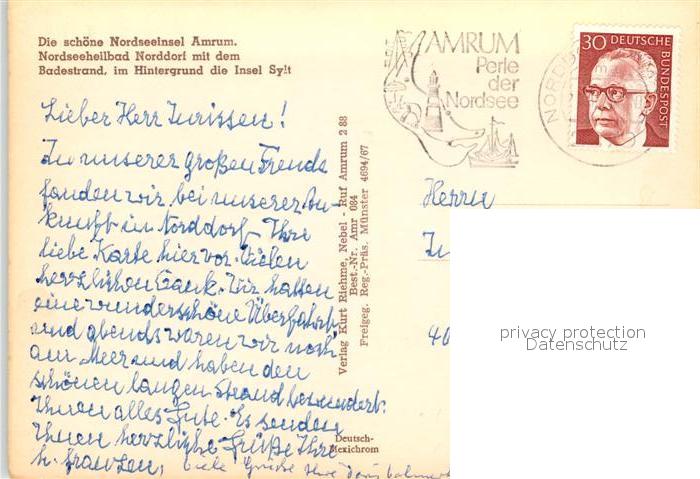 Die schöne Nordseeinsel Amrum.
Nordseeheilbad Norddorf mit dem
Badestrand, im Hintergrund die Insel Sylt
AMRUM
Perle
der
Nordsee
30 DEUTSCHE
BUNDESPOST
Lieber Herr Jurissen!
Zu unserer großen Freude
fanden wir bei unserer An-
kunft in Norddorf Ihre
liebe Karte hier vor. Vielen
herzlichen Dank. Wir hatten
eine wunderschöne Überfahrt
und abends waren wir noch
am Meer und haben den
schönen langen Strand bewundert.
Ihnen alles Gute. Es senden
Ihnen herzliche Grüße Ihre
viele Grüße Ihre
Verlag Kurt Riehme, Nebel - Ruf Amrum 2 88
Best.-Nr. Amr 084
Freigeg. Reg.-Präs. Münster 4694/67
Deutsch-
Mexichrom
Herrn
40
privacy protection
Datenschutz